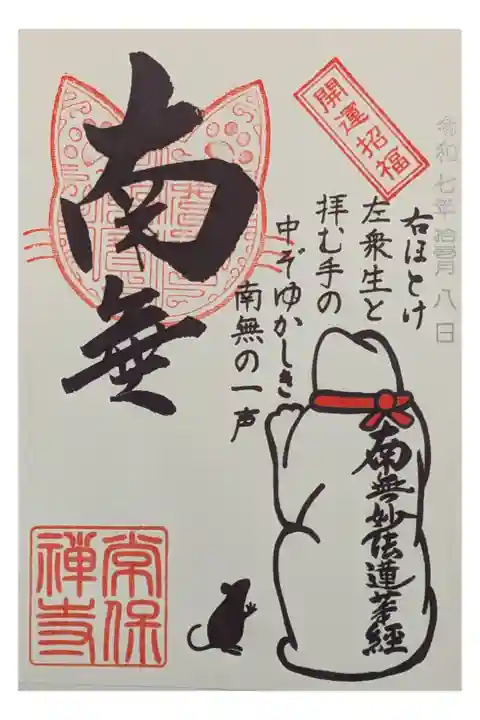 令和七年拾壱月八日
開運招福
右ほとけ
左衆生と
拝む手の
中ぞゆかしき
南無の一声
南無
南無妙法蓮華経
常保
禅寺